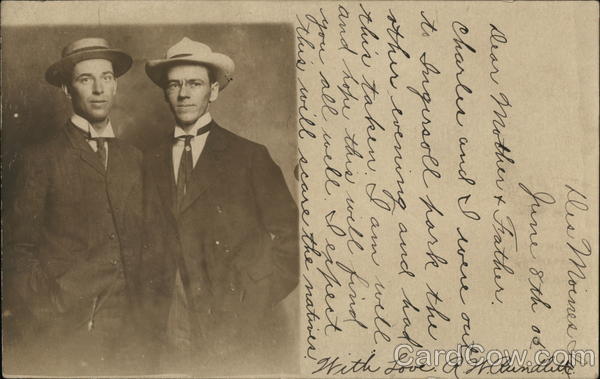 Des Moines
June 8th 06
Dear Mother & Father.
Charles and I were out
to Ingersoll park the
other evening and had
this taken. I am well
and hope this will find
you all well. I expect
this will scare the natives.
With Love. R W
CardCow.com